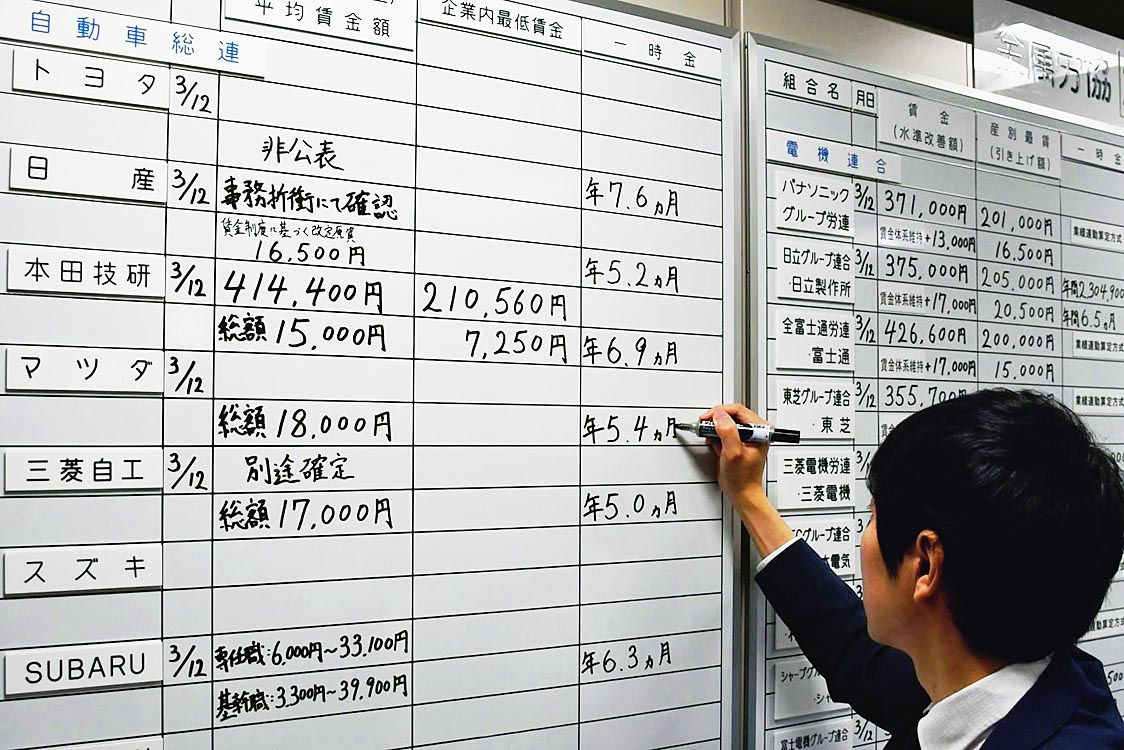 平均賃金額
企業内最低賃金
一時金
自動車総連
トヨタ 3/12
非公表
年7.6ヵ月
日産 3/12 事務折衝にて確認
賃金制度に基づく改定原資
16,500円
年5.2ヵ月
本田技研 3/12 414,400円 210,560円
総額15,000円 7,250円 年6.9ヵ月
マツダ 3/12
総額18,000円 年5.4ヵ月
三菱自工 3/12 別途確定
総額17,000円 年5.0ヵ月
スズキ
SUBARU 3/12 専任職:6,000円~33,100円 年6.3ヵ月
基幹職:3,300円~39,900円
金属労協
組合名 月日 賃金 産別最賃 一時金
(水準改善額) (引き上げ額)
電機連合
パナソニック 3/12 371,000円 201,000円 業績連動算定方式
グループ労連 賃金体系維持+13,000円 16,500円
日立グループ連合 3/12 375,000円 205,000円 年間2,304,900
・日立製作所 賃金体系維持+17,000円 20,500円 年間6.5ヵ月
全富士通労連 3/12 426,600円 200,000円 業績連動算定方式
・富士通 賃金体系維持+17,000円 15,000円
東芝グループ連合 3/12 355,700 業績連動算定方式
・東芝
三菱電機労連
・三菱電機
グループ連合
電気
シャープグループ
富士電機グループ